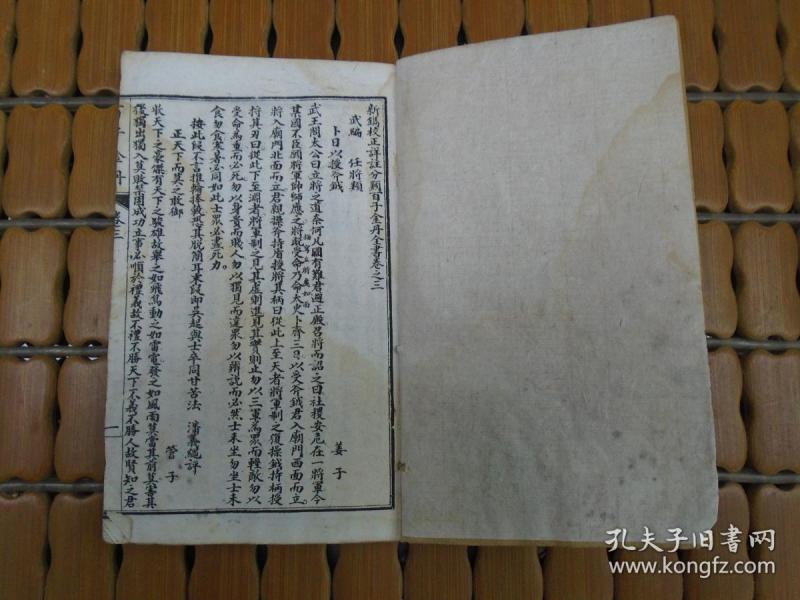 新鐫校正詳註分類百子金丹全書卷之三
武編 任將類
卜日以授斧鉞 姜子
武王問太公曰立將之道奈何凡國有難君避正殿召將而詔之曰社稷安危在一將軍今
某國不臣願將軍帥師應之將既受命乃命太史卜齊三日以受斧鉞君入廟門西面而立
將入廟門北面而立君親操斧持首授將其柄曰從此上至天者將軍制之復操鉞持柄授
將其刃曰從此下至淵者將軍制之見其虛則進見其實則止勿以三軍為眾而輕敵勿以
受命為重而必死勿以身貴而賤人勿以獨見而違眾勿以辯說而必然士未坐勿坐士未
食勿食寒暑必同如此士眾必盡死力
按此段不言推輪捧轂恐其脫簡耳末段即吳起與士卒同甘苦法 潘義繩評
正天下而莫之敢御 管子
收天下之豪傑有天下之駿雄故舉之如飛鳥動之如雷電發之如風雨莫當其前莫害其
後獨出獨入莫敢禁圉成功立事必順於禮義故不禮不勝天下不義不勝人故賢知之君
子金丹
卷三
一
孔夫子旧書网
www.kongfz.com